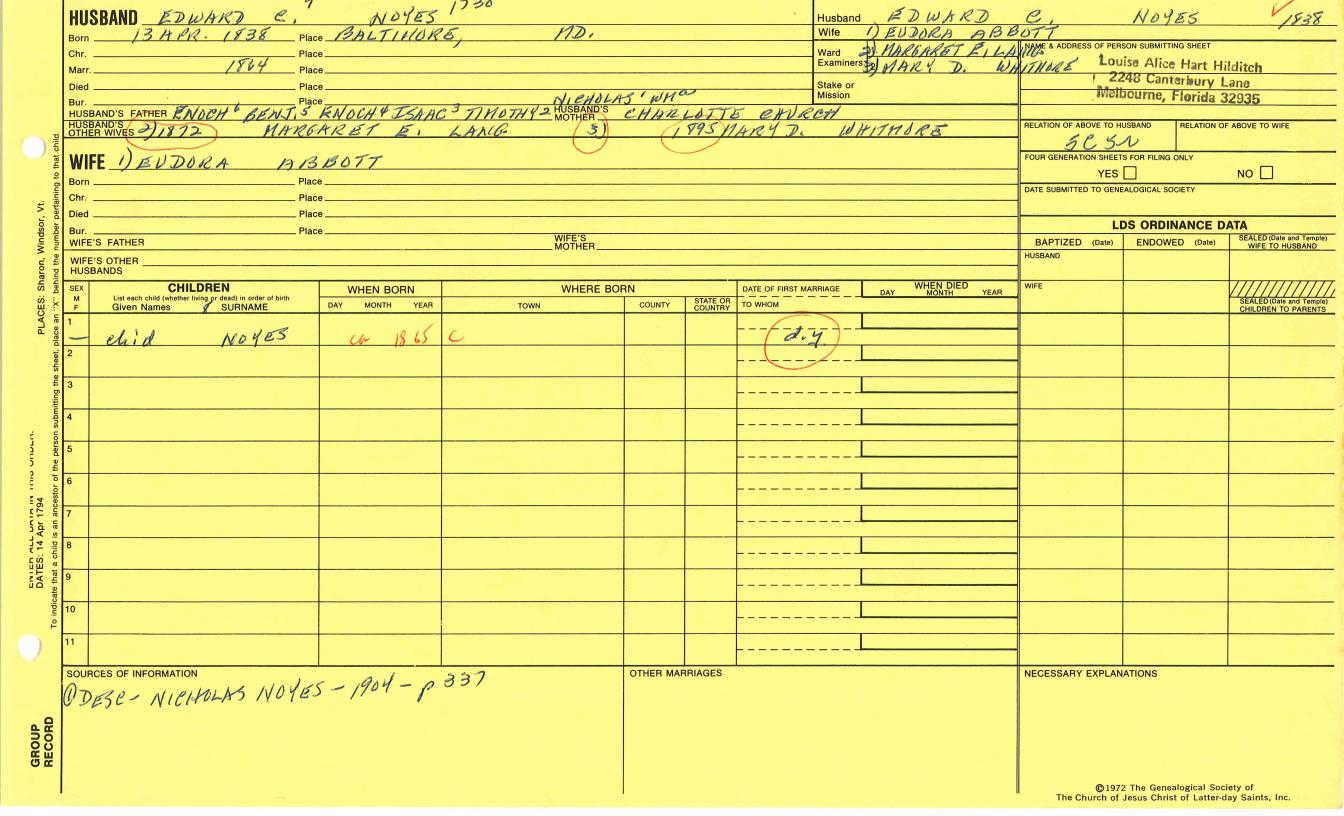 HUSBAND EDWARD C. 7 NOYES 1730
Born 13 APR. 1838 Place BALTIMORE, MD.
Chr. Place
Marr. 1864 Place
Died Place
Bur. Place
NICHOLAS¹ WMº
HUSBAND'S FATHER ENOCH⁶ BENJ.⁵ ENOCH⁴ ISAAC³ TIMOTHY² HUSBAND'S MOTHER CHARLOTTE CHURCH
HUSBAND'S OTHER WIVES 2) 1872 MARGARET E. LANG 3) 1895 MARY D. WHITMORE
WIFE 1) EUDORA ABBOTT
Born Place
Chr. Place
Died Place
Bur. Place
WIFE'S FATHER WIFE'S MOTHER
WIFE'S OTHER HUSBANDS
Husband EDWARD C. NOYES 1838
Wife 1) EUDORA ABBOTT
Ward 2) MARGARET E. LANG
Examiners: 3) MARY D. WHITMORE
Stake or Mission
NAME & ADDRESS OF PERSON SUBMITTING SHEET
Louise Alice Hart Hilditch
2248 Canterbury Lane
Melbourne, Florida 32935
RELATION OF ABOVE TO HUSBAND RELATION OF ABOVE TO WIFE
5C 5N
FOUR GENERATION SHEETS FOR FILING ONLY
YES NO
DATE SUBMITTED TO GENEALOGICAL SOCIETY
LDS ORDINANCE DATA
BAPTIZED (Date) ENDOWED (Date) SEALED (Date and Temple) WIFE TO HUSBAND
HUSBAND
WIFE
SEALED (Date and Temple) CHILDREN TO PARENTS
SEX M F
CHILDREN
List each child (whether living or dead) in order of birth
Given Names SURNAME
WHEN BORN
DAY MONTH YEAR
WHERE BORN
TOWN COUNTY STATE OR COUNTRY
DATE OF FIRST MARRIAGE
TO WHOM
WHEN DIED
DAY MONTH YEAR
1
— chid NOYES ca 1865 C d.y.
2
3
4
5
6
7
8
9
10
11
SOURCES OF INFORMATION
① DESC- NICHOLAS NOYES - 1904 - p 337
OTHER MARRIAGES
NECESSARY EXPLANATIONS
©1972 The Genealogical Society of
The Church of Jesus Christ of Latter-day Saints, Inc.
PLACES: Sharon, Windsor, Vt.
ENTER ALL DATA IN THIS ORDER:
DATES: 14 Apr 1794
To indicate that a child is an ancestor of the person submitting the sheet, place an "X" behind the number pertaining to that child
GROUP
RECORD